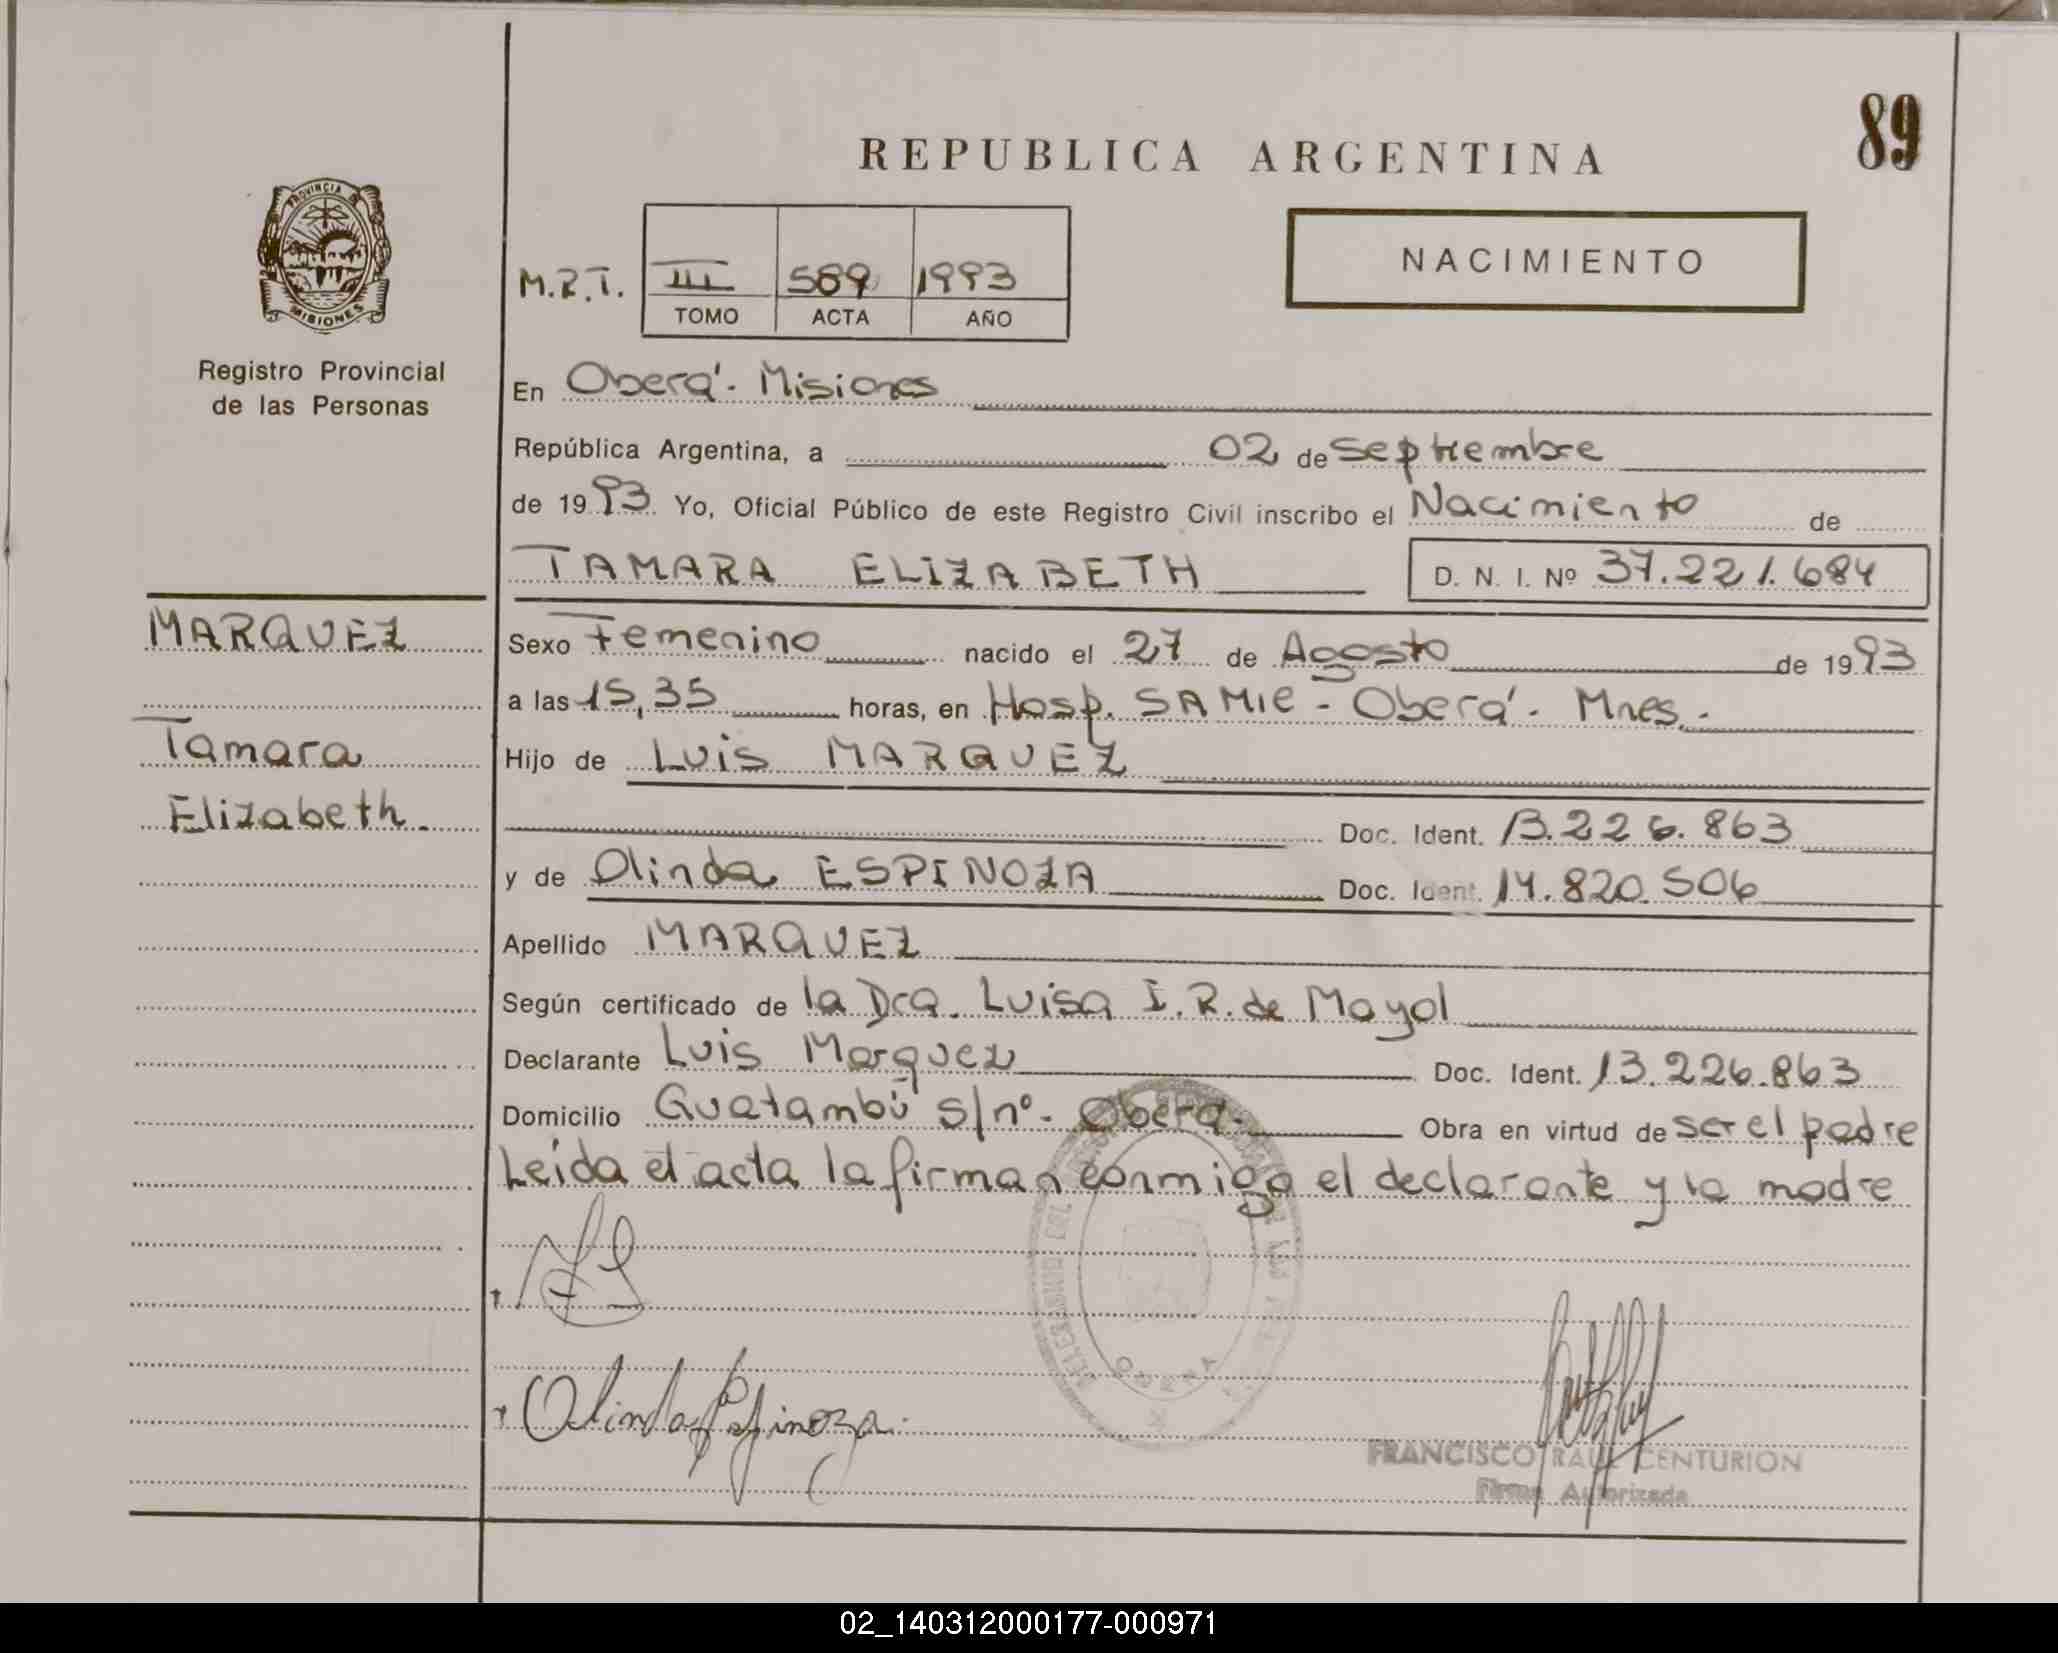 89
REPUBLICA ARGENTINA
PROVINCIA DE
MISIONES
Registro Provincial
de las Personas
NACIMIENTO
M.R.T. III 589 1993
TOMO ACTA AÑO
En Oberá - Misiones
República Argentina, a 02 de septiembre
de 1993 Yo, Oficial Público de este Registro Civil inscribo el Nacimiento de
TAMARA ELIZABETH D. N. I. Nº 37.221.684
MARQUEZ
Tamara
Elizabeth.
Sexo Femenino nacido el 27 de Agosto de 1993
a las 15,35 horas, en Hosp. SAMIC - Oberá - Mnes.-
Hijo de Luis MARQUEZ
Doc. Ident. 13.226.863
y de Olinda ESPINOZA Doc. Ident. 14.820.506
Apellido MARQUEZ
Según certificado de la Dra. Luisa I. R. de Mayol
Declarante Luis Marquez Doc. Ident. 13.226.863
Domicilio Guatambú s/nº - Oberá. Obra en virtud de ser el padre
Leída el acta la firman conmigo el declarante y la madre
Olinda Espinoza.
OBERA
FRANCISCO RAUL CENTURION
Firma Autorizada
02_140312000177-000971